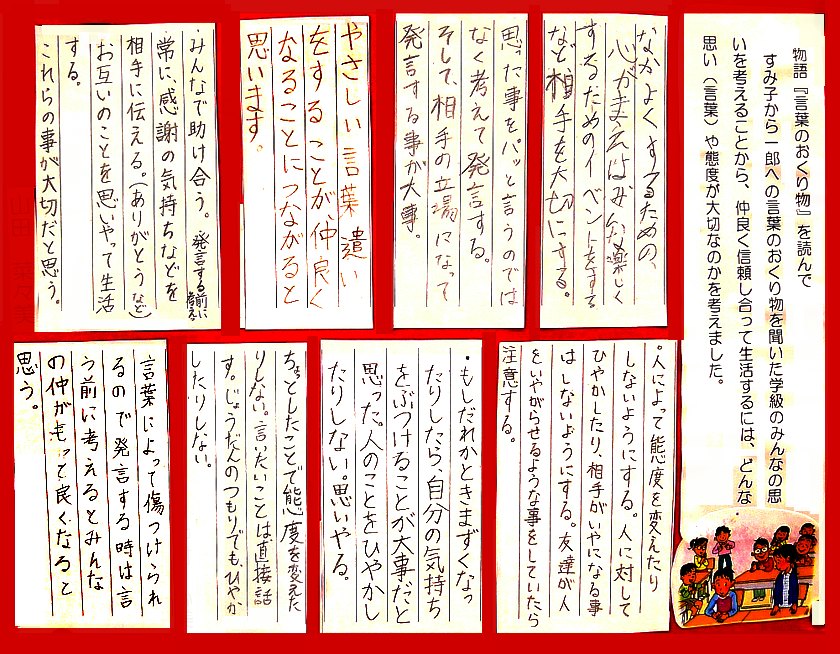 物語『言葉のおくり物』を読んで
すみ子から一郎への言葉のおくり物を聞いた学級のみんなの思
いを考えることから、仲良く信頼し合って生活するには、どんな
思い（言葉）や態度が大切なのかを考えました。
なかよくするための、
心がまえはみんな楽しく
するためのイベントをする
など、相手を大切にする。
思った事をパッと言うのでは
なく考えて発言する。
そして、相手の立場になって
発言する事が大事。
やさしい言葉遣い
をすることが、仲良く
なることにつながると
思います。
みんなで助け合う。発言する前に考え。
常に、感謝の気持ちなどを
相手に伝える。(ありがとうなど)
お互いのことを思いやって生活
する。
これらの事が大切だと思う。
・人によって態度を変えたり
しないようにする。人に対して
ひやかしたり、相手がいやになる事
はしないようにする。友達が人
をいやがらせるような事をしていたら
注意する。
・もしだれかときまずくなっ
たりしたら、自分の気持ち
をぶつけることが大事だと
思った。人のことをひやかし
たりしない。思いやる。
ちょっとしたことで態度を変えた
りしない。言いたいことは直接話
す。じょうだんのつもりでも、ひやか
したりしない。
言葉によって傷つけられ
るので発言する時は言
う前に考えるとみんな
の仲がもって良くなると
思う。